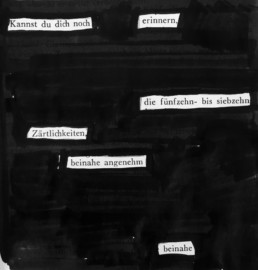 Kannst du dich noch erinnern,
die fünfzehn- bis siebzehn
Zärtlichkeiten,
beinahe angenehm
beinahe